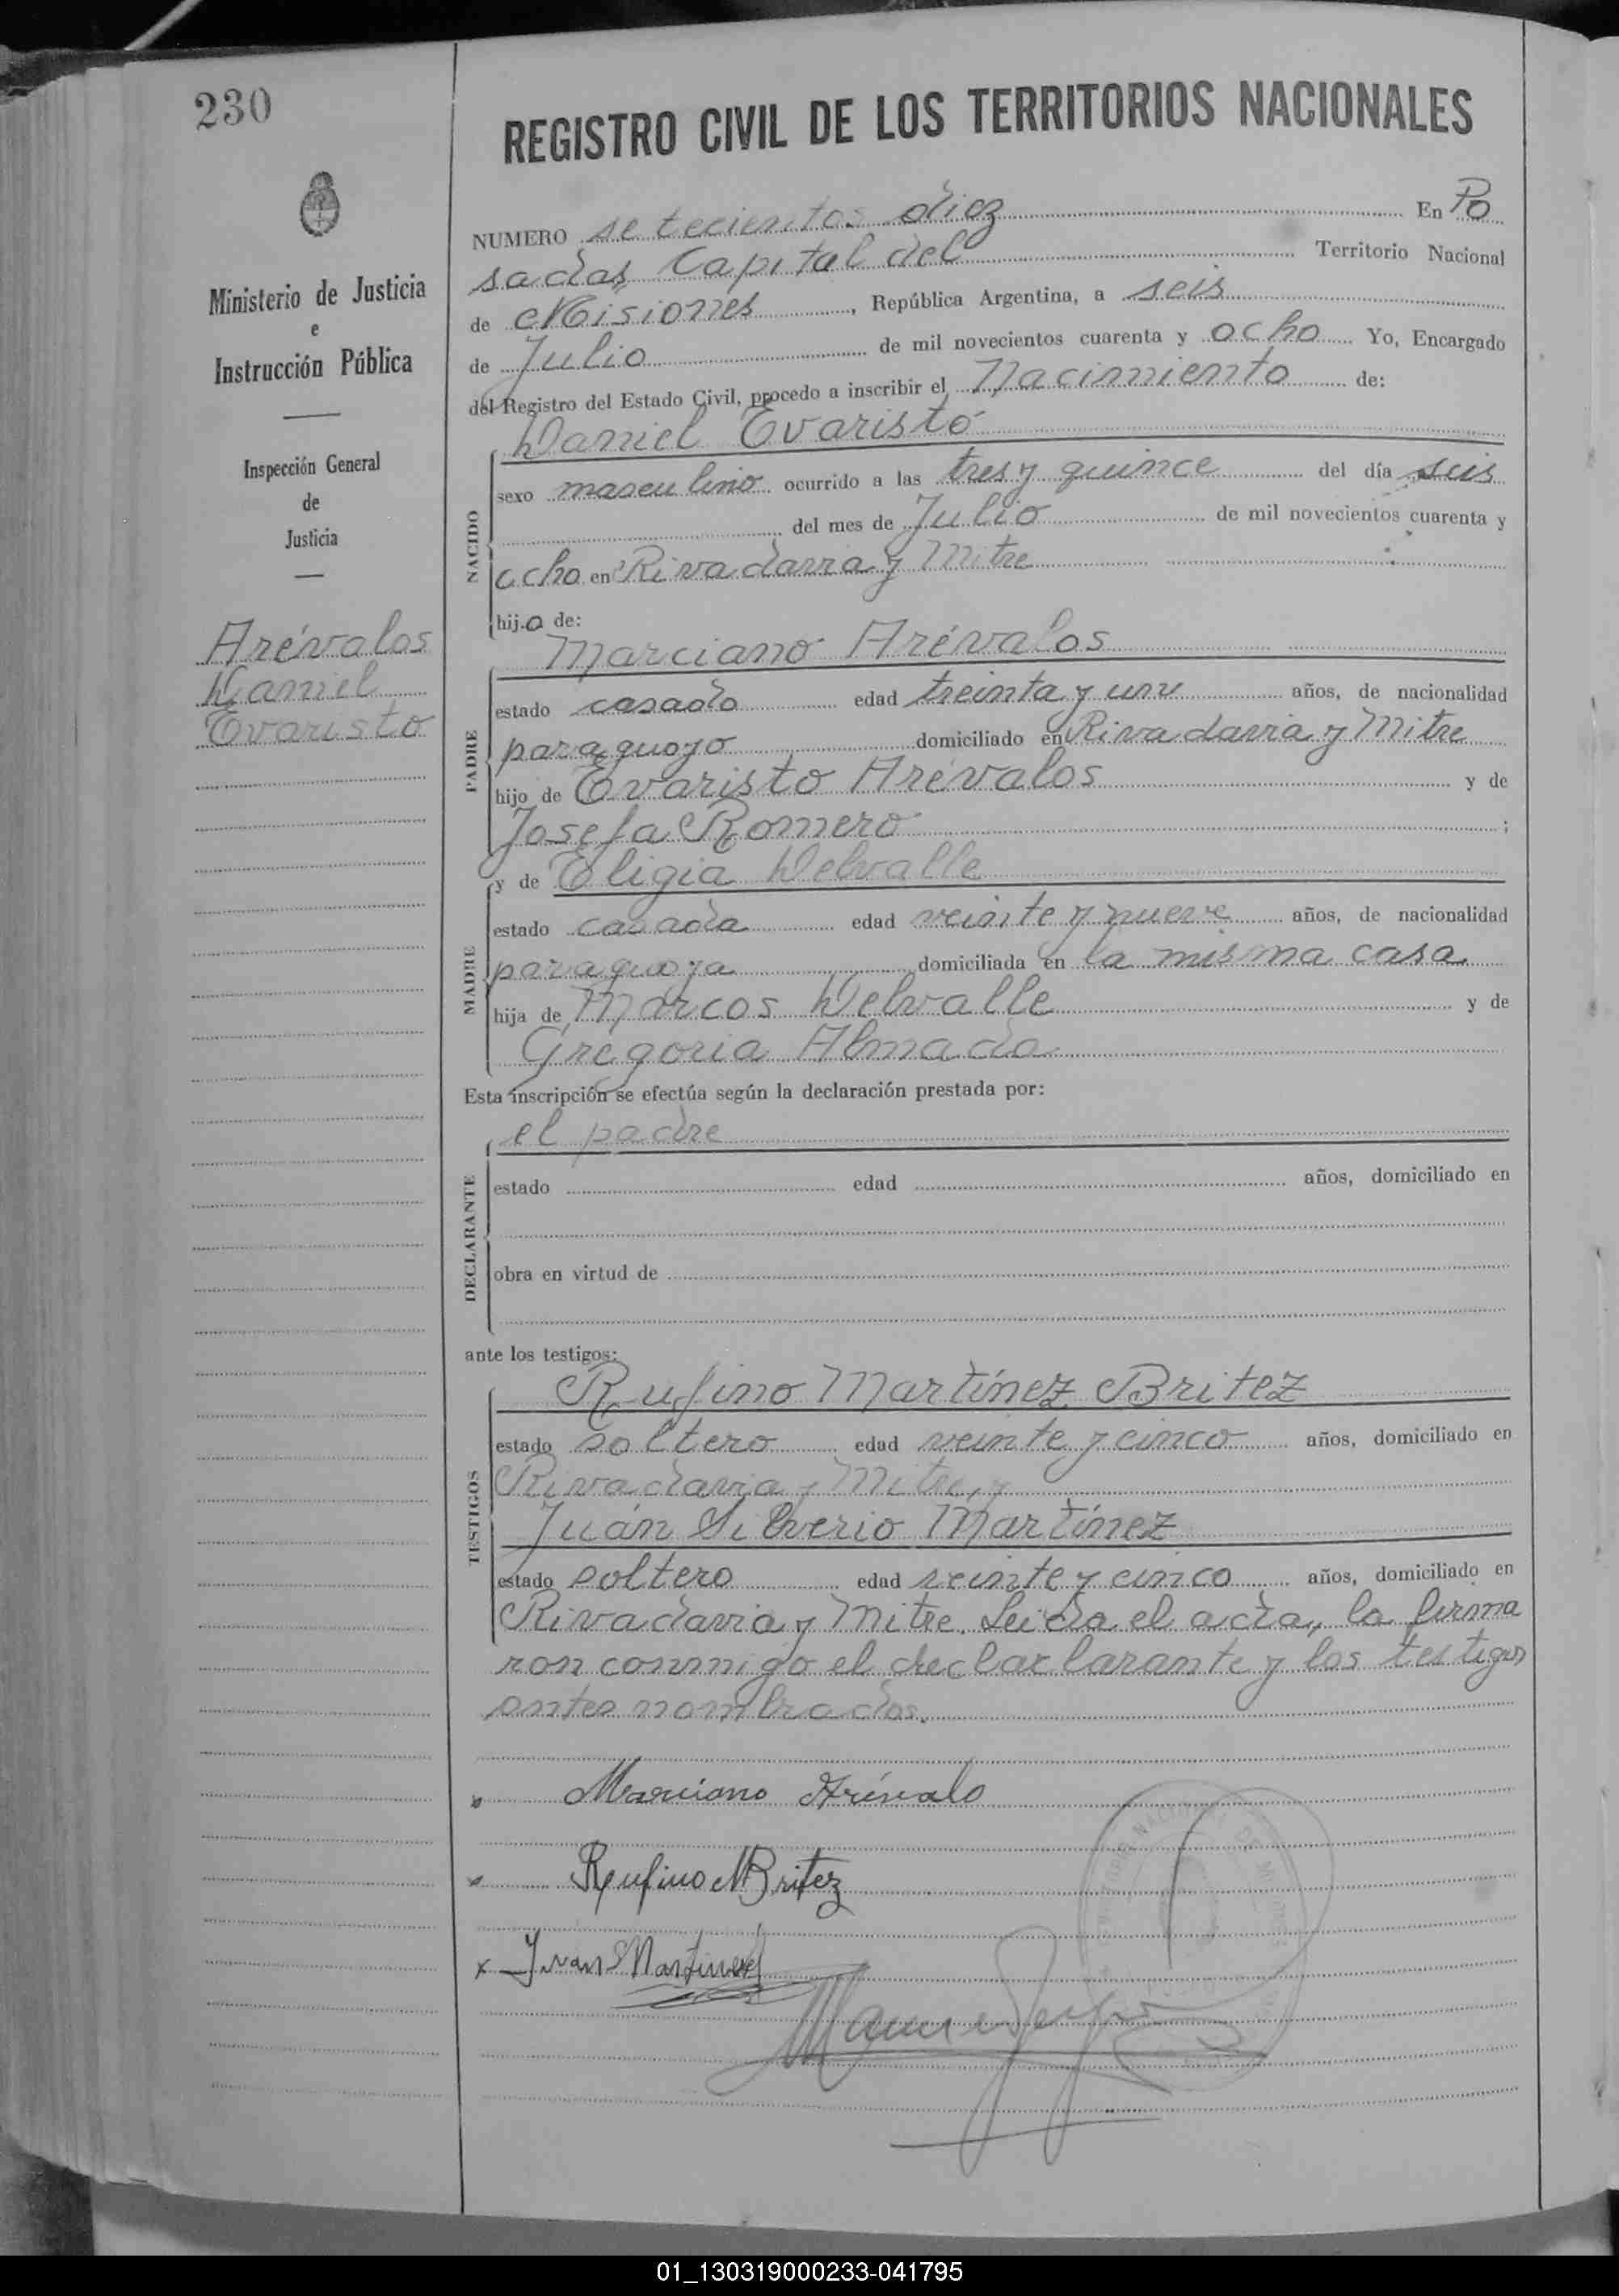 230
REGISTRO CIVIL DE LOS TERRITORIOS NACIONALES
Ministerio de Justicia
e
Instrucción Pública
Inspección General
de
Justicia
Arévalos
Daniel
Evaristo
NUMERO setecientos diez En Po
sadas Capital del Territorio Nacional
de Misiones, República Argentina, a seis
de Julio de mil novecientos cuarenta y ocho Yo, Encargado
del Registro del Estado Civil, procedo a inscribir el Nacimiento de:
Daniel Evaristo
NACIDO
sexo masculino ocurrido a las tres y quince del día seis
del mes de Julio de mil novecientos cuarenta y
ocho en Rivadavia y Mitre
hijo de:
Marciano Arévalos
PADRE
estado casado edad treinta y uno años, de nacionalidad
paraguayo domiciliado en Rivadavia y Mitre
hijo de Evaristo Arévalos y de
Josefa Romero ;
y de Eligia Delvalle
MADRE
estado casada edad veinte y nueve años, de nacionalidad
paraguaya domiciliada en la misma casa
hija de Marcos Delvalle y de
Gregoria Almada
Esta inscripción se efectúa según la declaración prestada por:
el padre
DECLARANTE
estado edad años, domiciliado en
obra en virtud de
ante los testigos:
Rufino Martínez Britez
TESTIGOS
estado soltero edad veinte y cinco años, domiciliado en
Rivadavia y Mitre, y
Juán Silverio Martínez
estado soltero edad veinte y cinco años, domiciliado en
Rivadavia y Mitre. Leida el acta, la firma
ron conmigo el declarlarante y los testigos
antes nombrados.
Marciano Arévalo
Rufino M Britez
x Juan S Martinez
01_130319000233-041795